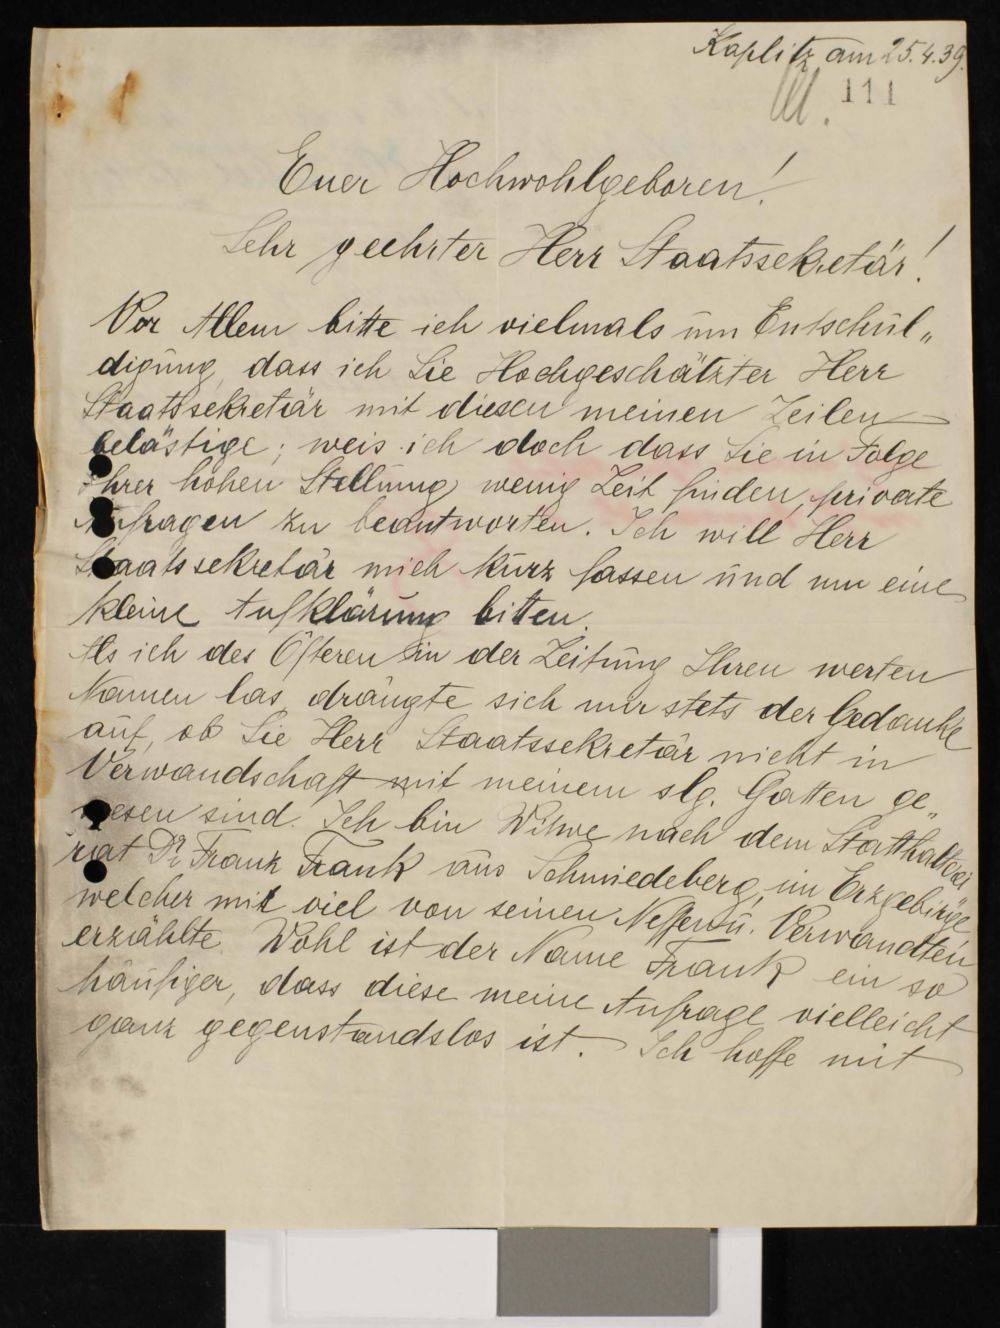 Kaplitz am 25.4.39.
111
Euer Hochwohlgeboren!
Sehr geehrter Herr Staatssekretär!
Vor Allem bitte ich vielmals um Entschul„
digung, dass ich Sie Hochgeschätzter Herr
Staatssekretär mit diesen meinen Zeilen
belästige; weis ich doch dass Sie in Folge
Ihrer hohen Stellung wenig Zeit finden, private
Anfragen zu beantworten. Ich will Herr
Staatssekretär mich kurz fassen und um eine
kleine Aufklärung bitten.
Als ich des Öfteren in der Zeitung Ihren werten
Namen las, drängte sich mir stets der Gedanke
auf, ob Sie Herr Staatssekretär nicht in
Verwandschaft mit meinem slg. Gatten ge„
wesen sind. Ich bin Witwe nach dem Statthalterei
rat Dr Franz Frank aus Schmiedeberg, im Erzgebirge
welcher mir viel von seinen Neffen u. Verwandten
erzählte. Wohl ist der Name Frank ein so
häufiger, dass diese meine Anfrage vielleicht
ganz gegenstandslos ist. Ich hoffe mit